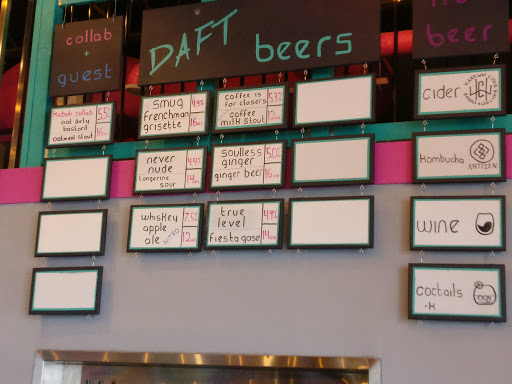 collab
+
guest
DAFT beers
beer
Mobah collab 5.5%
oat dirty
bastard
oatmeal stout 16oz
smug 4.9%
Frenchman
grisette 16oz
coffee is 5.3%
for closers
coffee
milk stout 12oz
never 4.4%
nude
tangerine 14oz
sour
soulless 5.0%
ginger
ginger beer 16oz
whiskey 7.5%
apple
ale NITRO 12oz
true 4.9%
level
fiesta gose 14oz
cider
Kombucha
ARTIZEN
wine
coctails